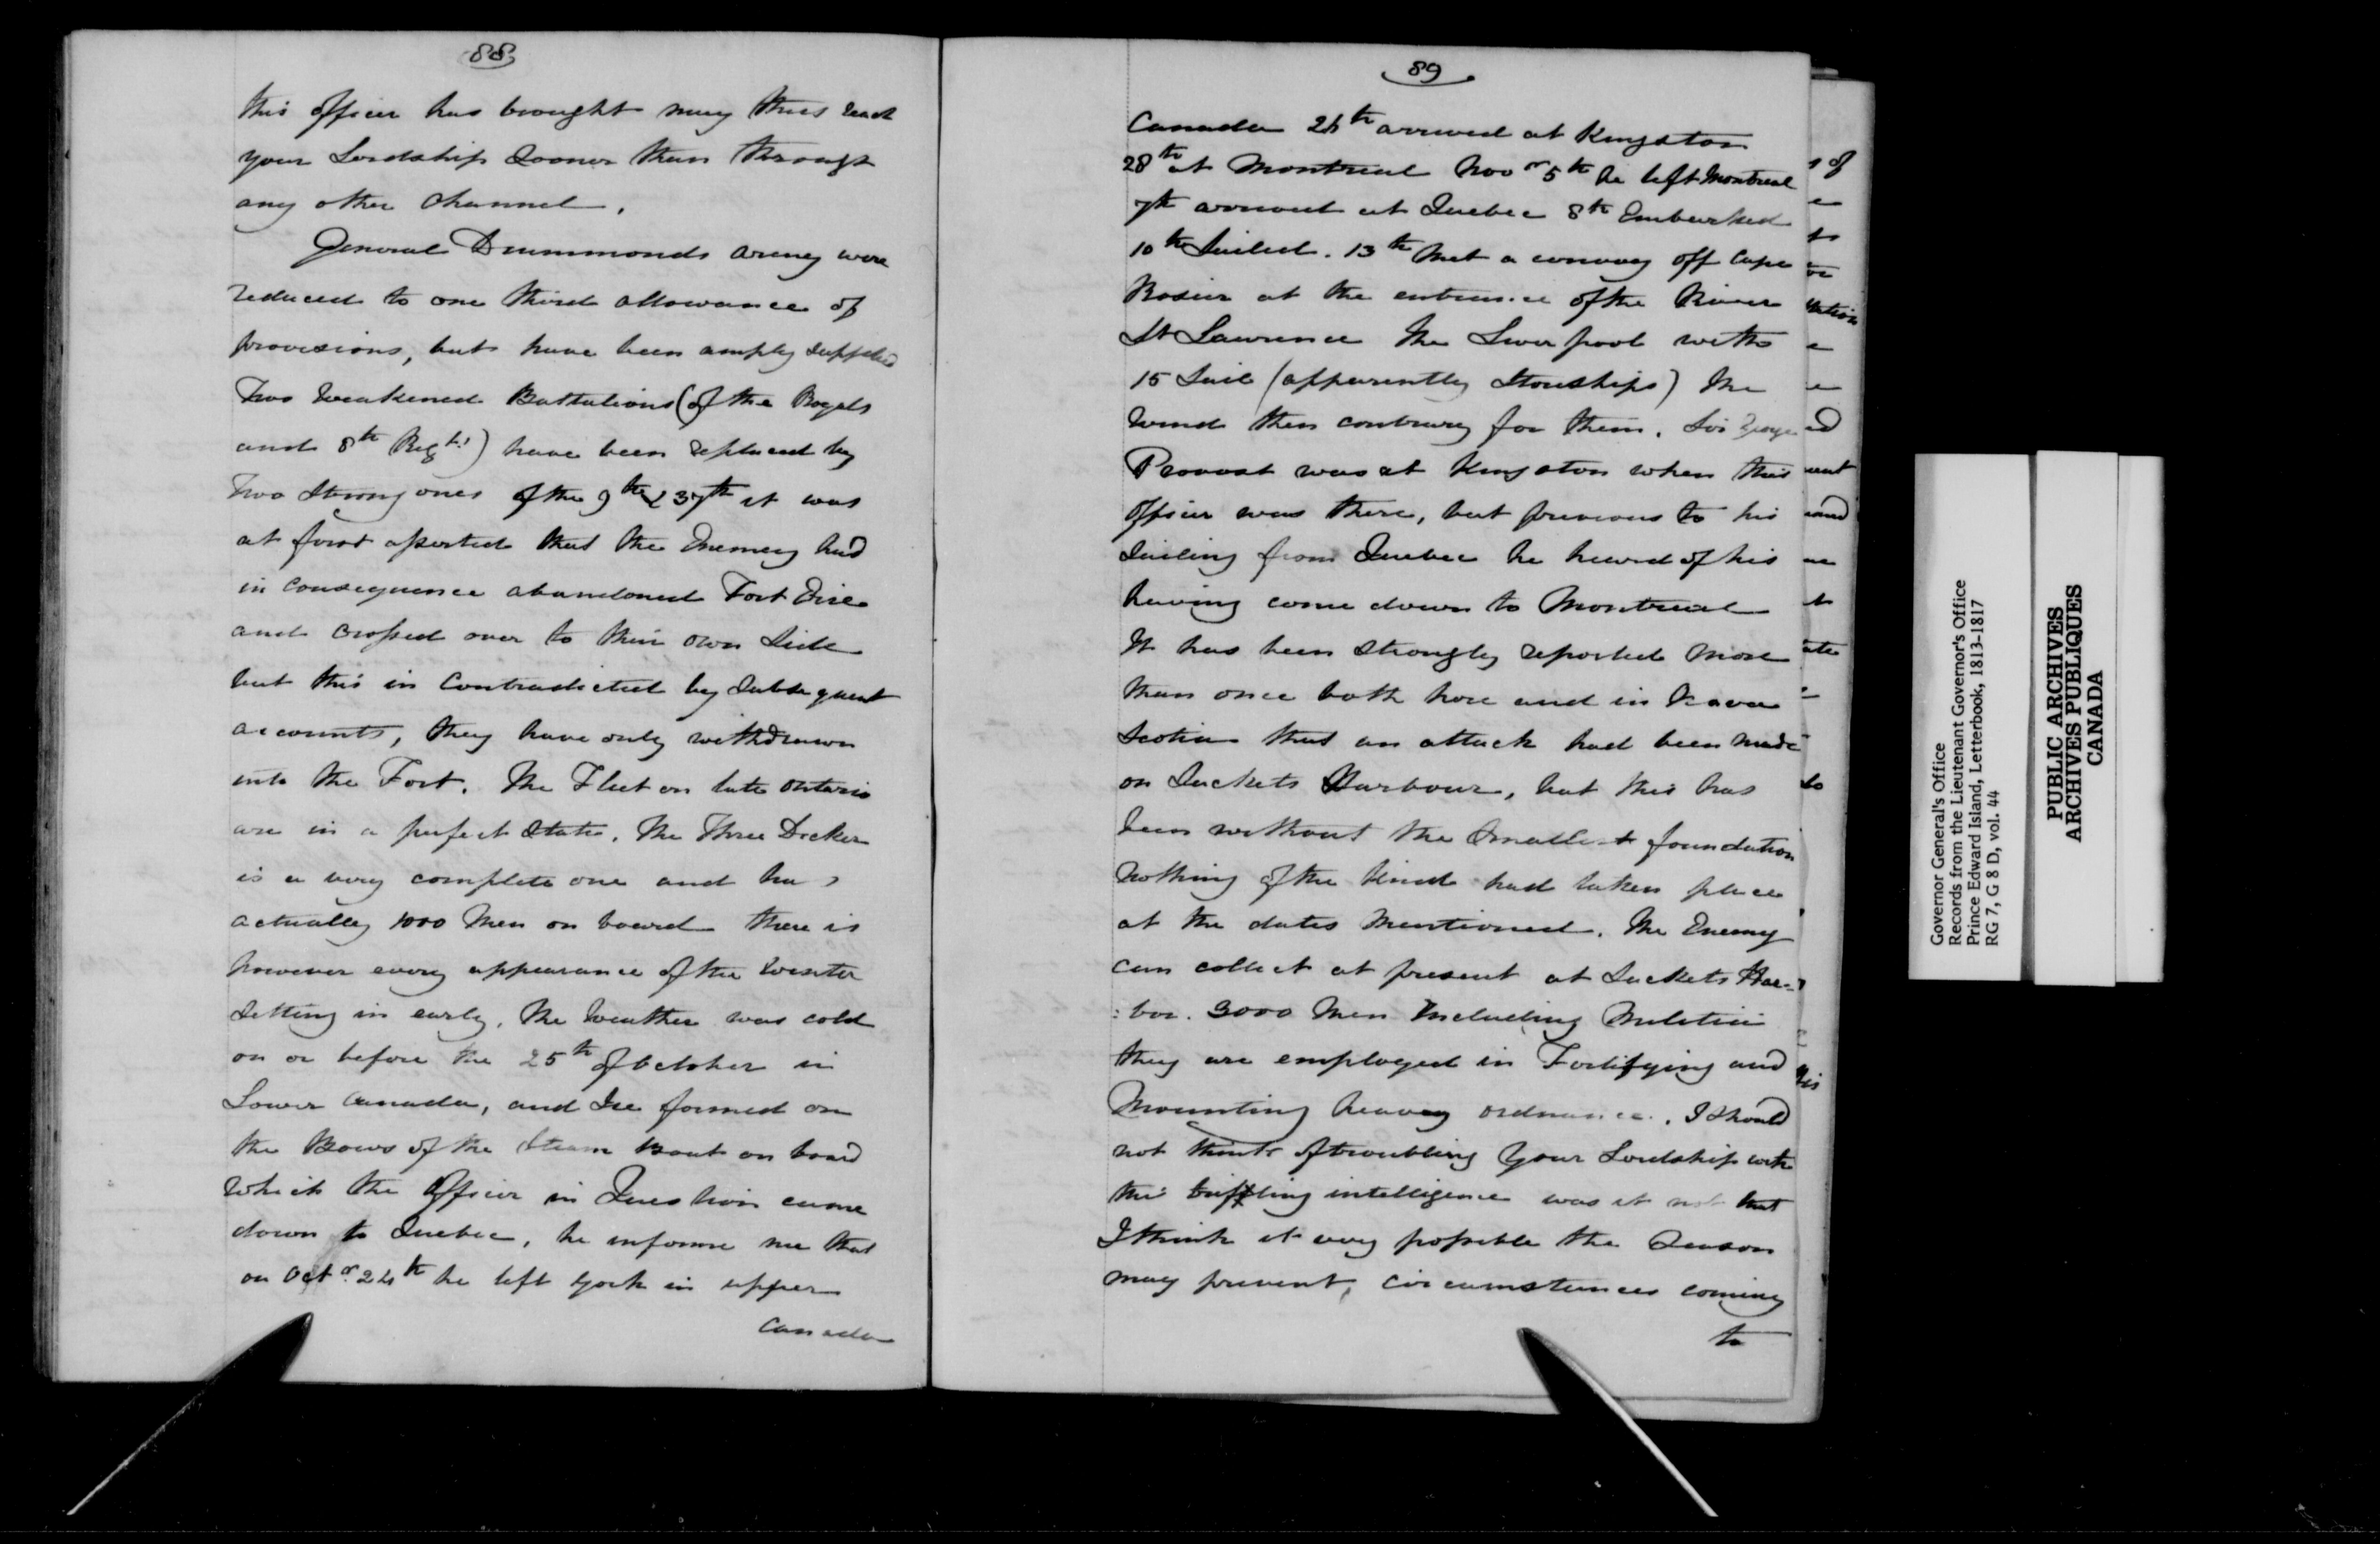 88
this officer has brought may thus reach
your Lordship Sooner than through
any other Channel.
General Drummonds army were
reduced to one third allowance of
provisions, but have been amply supplied
Two Weakened Battalions (of the Royals
and 8th Regts) have been replaced by
Two Strong ones of the 9th & 37th it was
at first asserted that the Enemy had
in consequence abandoned Fort Erie
and crossed over to their own Side
but this in Contradicted by Subsequent
accounts, they have only withdrawn
into the Fort. The Fleet on lake Ontario
are in a perfect State. The Three Decker
is a very complete one and has
actually 1000 Men on board there is
however every appearance of the Winter
Setting in early. The Weather was cold
on or before the 25th of October in
Lower Canada, and Ice formed on
the Bows of the Steam Boat on board
Which the Officer in Question came
down to Quebec, he informs me that
on Octr. 24th he left York in upper
Canada
89
Canada 26th arrived at Kingston
28th at Montreal Novr 5th he left Montreal
7th arrived at Quebec 8th Embarked
10th Sailed. 13th Met a convoy off Cape
Rosier at the entrance of the River
St Lawrence The Liverpool with
15 Sail (apparently Storeships) The
Wind then contrary for them. Sir George
Prevost was at Kingston when this
officer was there, but previous to his
Sailing from Quebec he heard of his
having come down to Montreal
It has been Strongly reported More
than once both here and in Nova
Scotia that an attack had been made
on Sackets Harbour, but this has
been without the Smallest foundation
Nothing of the kind had taken place
at the dates Mentioned. The Enemy
can collect at present at Sackets Har-
:bor. 3000 Men Including Militia
they are employed in Fortifying and
Mounting heavy ordnance. I should
not think of troubling Your Lordship with
this trifling intelligence was it not that
I think it very possible the Season
may prevent, circumstances coming
to
s of
Governor General's Office
Records from the Lieutenant Governor's Office
Prince Edward Island, Letterbook, 1813-1817
RG 7, G 8 D, vol. 44
PUBLIC ARCHIVES
ARCHIVES PUBLIQUES
CANADA